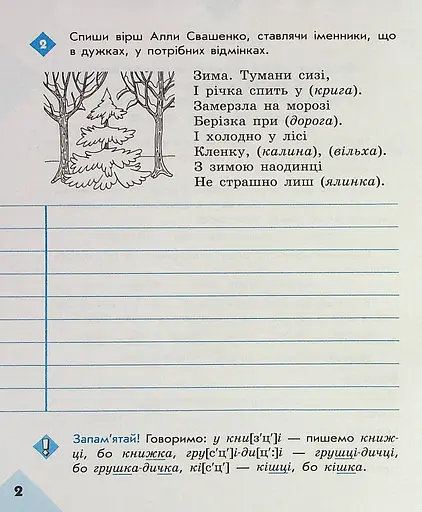 2 Спиши вірш Алли Свашенко, ставлячи іменники, що
в дужках, у потрібних відмінках.
Зима. Тумани сизі,
І річка спить у (крига).
Замерзла на морозі
Берізка при (дорога).
І холодно у лісі
Кленку, (калина), (вільха).
З зимою наодинці
Не страшно лиш (ялинка).
! Запам'ятай! Говоримо: у кни[з'ц']і — пишемо книж-
ці, бо книжка, гру[с'ц']і-ди[ц':]і — грушці-дичці,
бо грушка-дичка, кі[с'ц'] — кішці, бо кішка.
2